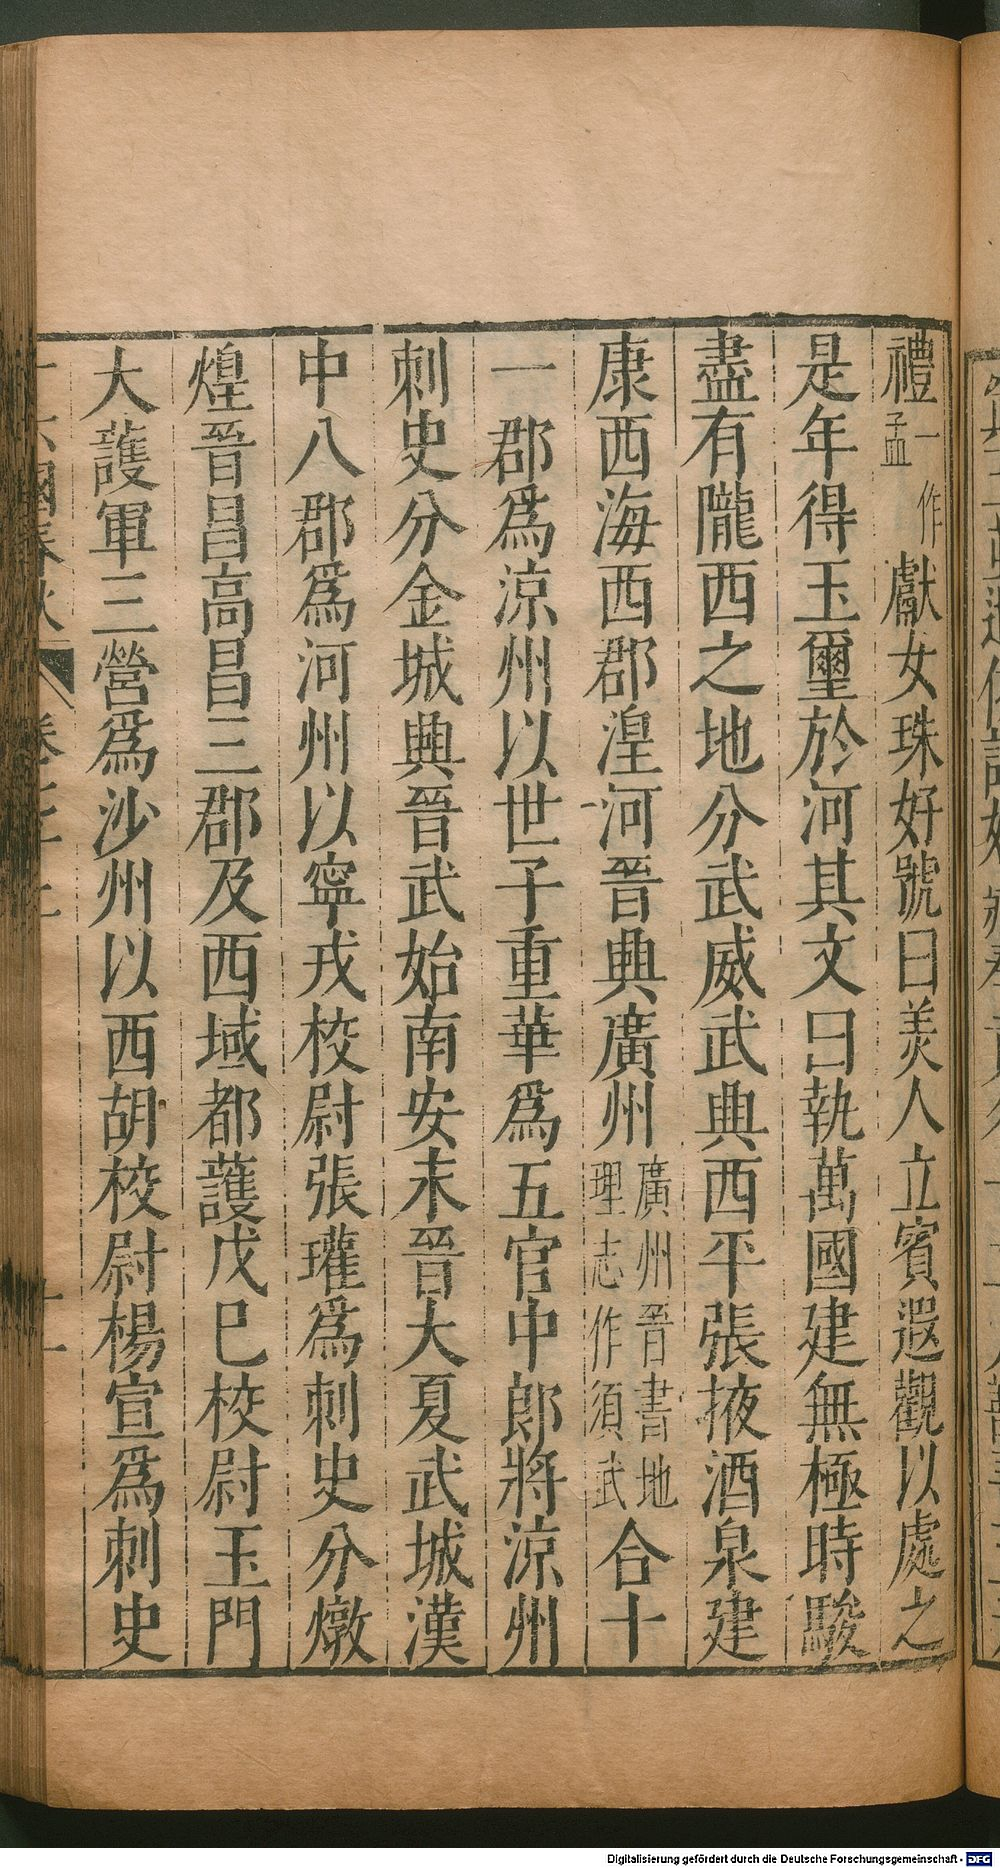 禮一作孟獻女珠好號曰美人立賓遐觀以處之
是年得玉璽於河其文曰執萬國建無極時駿
盡有隴西之地分武威武興西平張掖酒泉建
康西海西郡湟河晉興廣州廣州晉書地理志作須武合十
一郡爲涼州以世子重華爲五官中郎將涼州
刺史分金城興晉武始南安未晉大夏武城漢
中八郡爲河州以寧戎校尉張瓘爲刺史分燉
煌晉昌高昌三郡及西域都護戊巳校尉玉門
大護軍三營爲沙州以西胡校尉楊宣爲刺史
國春秋
Digitalisierung gefördert durch die Deutsche Forschungsgemeinschaft - DFG